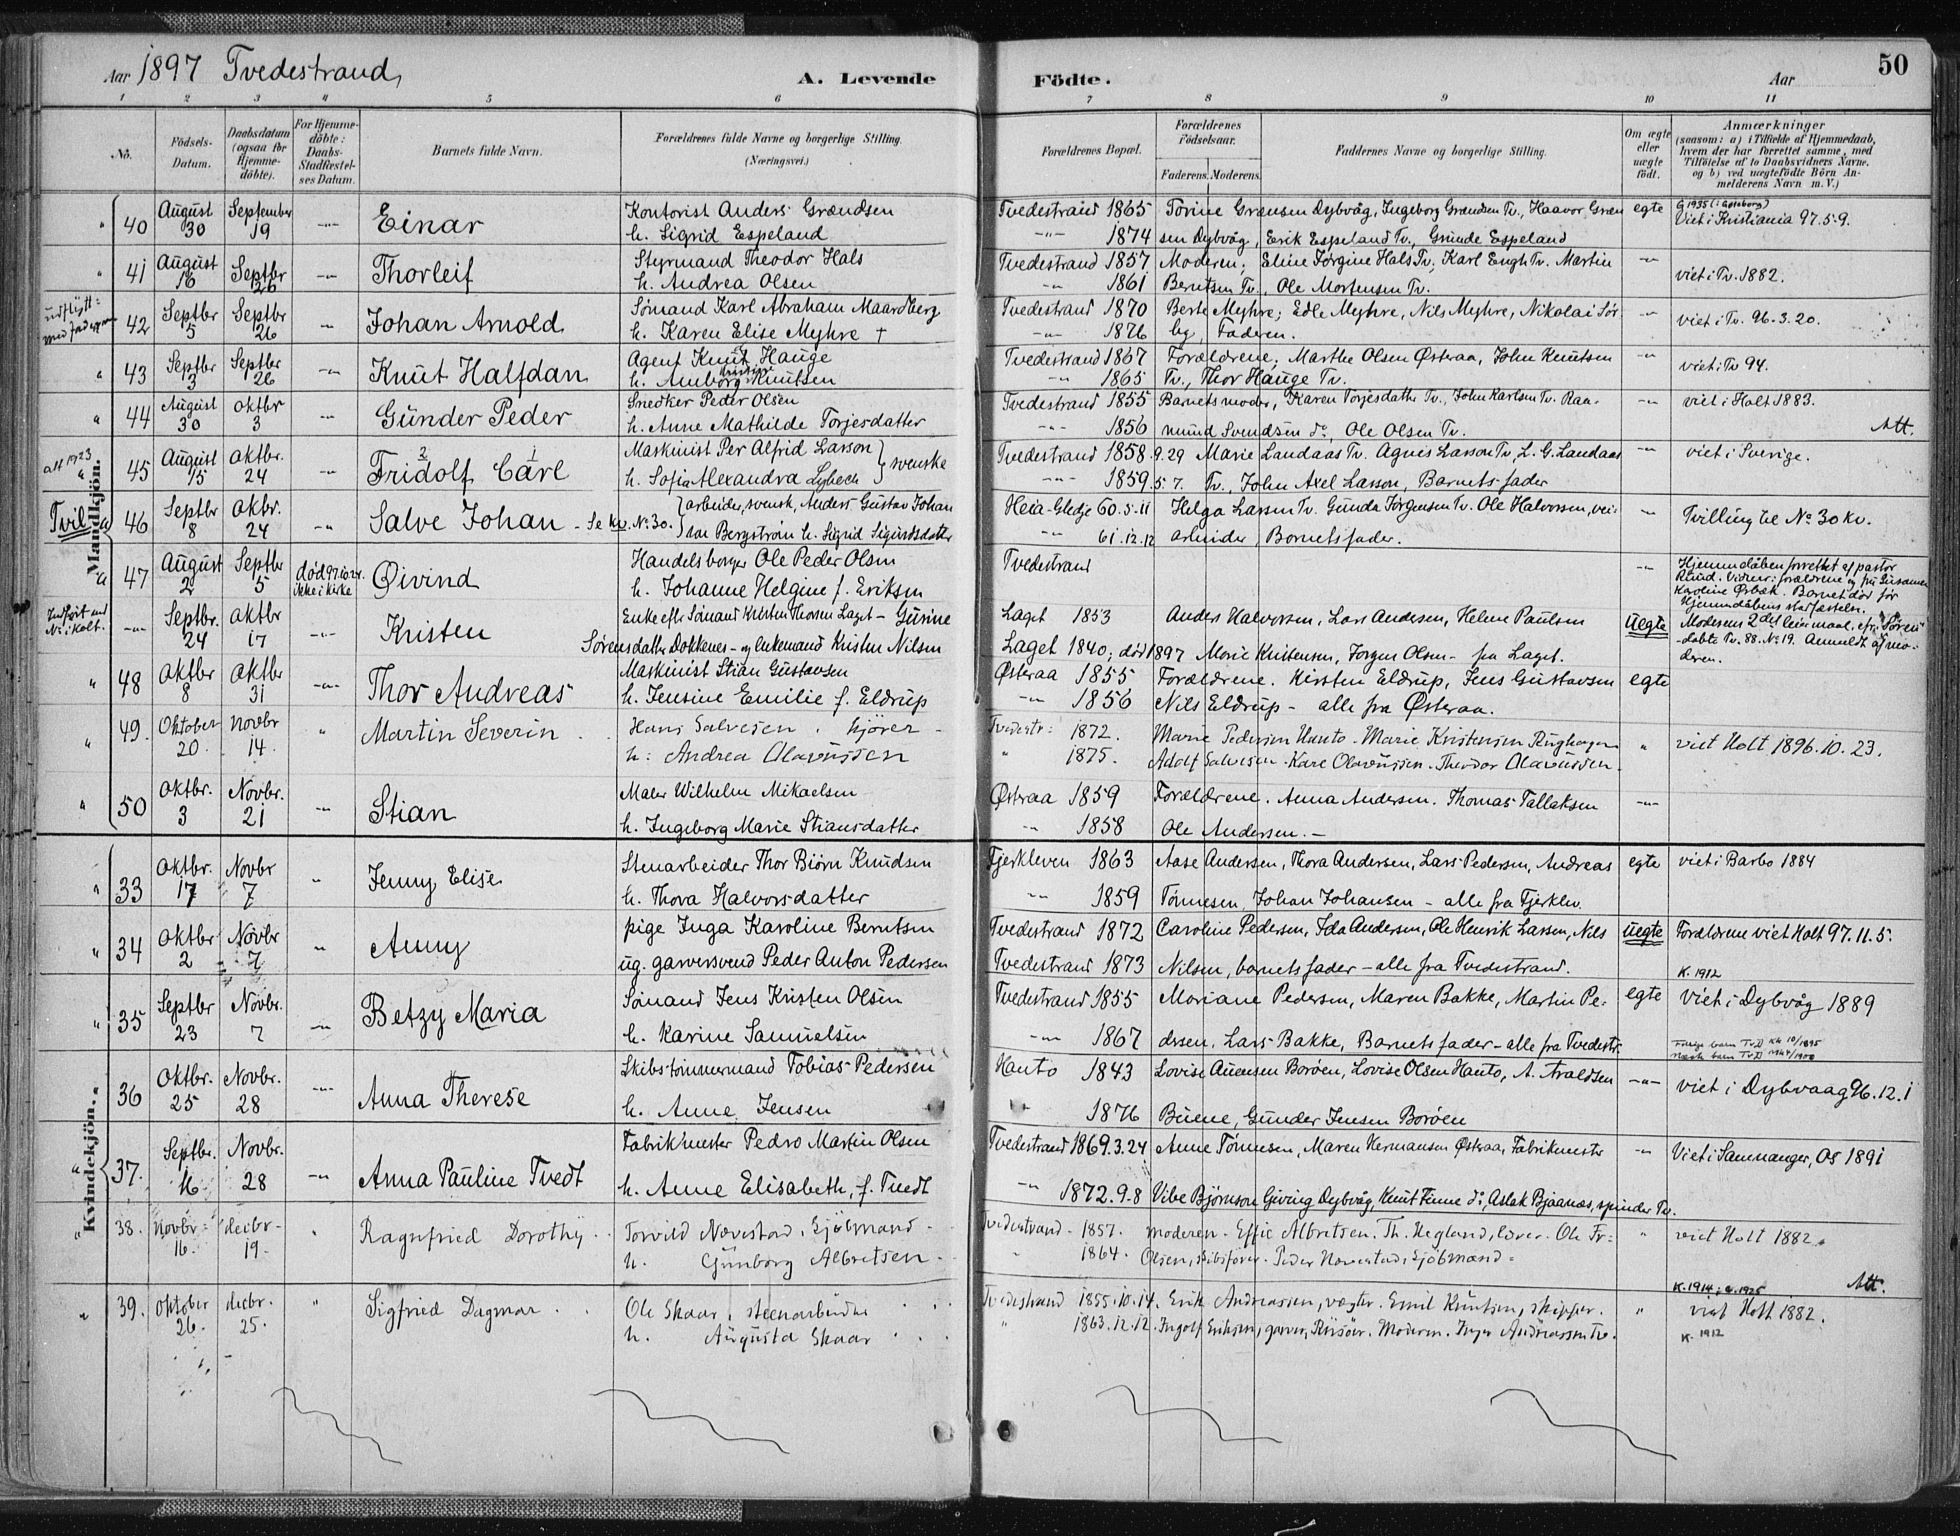 Aar 1897 Tvedestrand
A. Levende Födte.
Aar
50
1 2 3 4 5 6 7 8 9 10 11
No.
Födsels-Datum.
Daabsdatum (ogsaa for Hjemme-döbte).
For Hjemme-döbte: Daabs-Stadfæstel-ses Datum.
Barnets fulde Navn.
Forældrenes fulde Navne og borgerlige Stilling. (Næringsvei.)
Forældrenes Bopæl.
Forældrenes Födselsaar.
Faderens. Moderens.
Faddernes Navne og borgerlige Stilling.
Om ægte eller uægte födt.
Anmærkninger
(saasom: a) i Tilfælde af Hjemmedaab, hvem der har forrettet samme, med Tilföielse af to Daabsvidners Navne. og b) ved uægtefödte Börn An-melderens Navn m. V.)
Mandkjön.
40 August 30 September 19 Einar Kontorist Anders Grændsen Tvedestrand 1865 Torine Grænsen Dybvåg, Ingeborg Grændsen Tv., Haavor Græn egte G 1935 (: Gøteborg)
h. Sigrid Espeland 1874 sen Dybvåg, Erik Espeland Tv., Gunde Espeland Viet i Kristiania 97.5.9.
41 August 16 Septbr 26 Thorleif Styrmand Theodor Hals Tvedestrand 1857 Moderen; Eline Jørgine Hals Tv., Karl Engh Tv. Martin
h. Andrea Olsen 1861 Berntsen Tv., Ole Mortensen Tv. viet i Tv. 1882.
42 Septbr 5 Septbr 26 Johan Arnold Sømand Karl Abraham Maardberg Tvedestrand 1870 Berte Myhre; Edle Myhre, Nils Myhre, Nikolai Sør
h. Karen Elise Myhre † 1876 by, Faderen. viet i Tv. 96.3.20.
43 Septbr 3 Septbr 26 Knut Halfdan Agent Knut Hauge Tvedestrand 1867 Forældrene, Marthe Olsen Østeraa, John Knutsen
h. Amborg Knutsen 1865 Tv., Thor Hauge Tv. viet i Tv 94.
44 August 30 Oktbr 3 Gunder Peder Snedker Peder Olsen Tvedestrand 1855 Barnets moder, Karen Torjesdatter Tv., John Karlsen Tv. Raa- viet i Holt 1883.
h. Anne Mathilde Torjesdatter 1856 mund Svendsen do, Ole Olsen Tv. Att.
att 1923
45 August 15 Oktbr. 24 Fridolf Carl Maskinist Per Alfrid Larsson Tvedestrand 1858.9.29 Marie Landaas Tv. Agnes Larsson Tv, L. G. Landaas viet i Sverige.
h. Sofia Alexandra Lybeck svenske 1859.5.7. Tv., John Axel Larsson, Barnets fader
Tvil
46 Septbr 8 Oktbr. 24 Salve Johan - Se kv. No 30. arbeider, svensk, Anders Gustav Johan Heia-Gletje 60.5.11 Helga Larsen Tv. Gunda Jørgensen Tv. Ole Halvorsen, vei- Tvilling til No 30 kv.
Bergstrøm h. Sigrid Sigurdsdatter 61.12.12 arbeider, Barnets fader.
47 August 2 Septbr 5 død 97.10.24. ikke i kirke Øivind Handelsborger Ole Peder Olsen Tvedestrand Hjemmedåben forrettet af pastor
h. Johanne Helgine f. Eriksen
Karoline Ørbæk. Barnet død før Hjemmedåbens stadfæstelse.
Septbr. 24 Oktbr 17 Kristen Enke efter Sømand Kristen Thorsen Laget - Gurine Laget 1853 Anders Halvorsen, Lars Andersen, Helene Paulsen Uegte Moderens 2det leiermaal,
Sørensdatter Dokkenes - og enkemand Kristen Nilsen Laget 1840; død 1897 Marie Kristensen, Jørgen Olsen - fra Laget. døbte Tv. 88. No 19. Anmeldt af mo-deren.
48 Oktbr 8 Oktbr 31 Thor Andreas Maskinist Stian Gustavsen Østeraa 1855 Forældrene. Kirsten Eldrup, Jens Gustavsen egte
h. Jensine Emilie f. Eldrup 1856 Nils Eldrup - alle fra Østeraa.
49. Oktober 20. Novbr 14. Martin Severin Hans Salvesen. kjører Tvedestr: 1872. Marie Pedersen Hanto. Marie Kristensen viet Holt 1896.10.23.
h: Andrea Olavussen 1875. Adolf Salvesen. Kare Olavussen. Theodor Olavussen.
50 Oktbr. 3 Novbr. 21 Stian Maler Wilhelm Mikaelsen Østeraa 1859 Forældrene. Anna Andersen. Thomas Tallaksen
h. Ingeborg Marie Stiansdatter 1858 Ole Andersen. -
Kvindekjön.
33 Oktbr. 17 Novbr 7 Jenny Elise Stenarbeider Thor Biørn Knudsen Fjerkleven 1863 Aase Andersen, Thora Andersen, Lars Pedersen, Andreas egte viet i Barbo 1884
h. Thora Halvorsdatter 1859 Tønnesen, Johan Johansen - alle fra Fjerklev.
34 Oktbr 2 Novbr 7 Anny pige Inga Karoline Berntsen Tvedestrand 1872 Caroline Pedersen, Ida Andersen, Ole Henrik Larsen, Nils uegte Forældrene viet Holt 97.11.5.
ug. garversvend Peder Anton Pedersen Tvedestrand 1873 Nilsen, barnets fader - alle fra Tvedestrand. K. 1912
35 Septbr 23 Novbr. 7 Betzy Maria Sømand Jens Kristen Olsen Tvedestrand 1855 Moriane Pedersen, Maren Bakke, Martin Pe- egte viet i Dybvåg 1889
h. Karine Samuelsen 1867 dersen, Lars Bakke, Barnets fader - alle fra Tvedestr.
36 Oktbr. 25 Novbr. 28 Anna Therese Skibstømmermand Tobias Pedersen Hanto 1843 Lovise Auensen Borøen, Lovise Olsen Hanto, A. Araldsen viet i Dybvaag 96.12.1
h. Anne Jensen 1876 Buene, Gunder Jensen Borøen
37. Septbr. 16 Novbr. 28 Anna Pauline Tvedt Fabrikmester Pedro Martin Olsen Tvedestrand 1869.3.24 Anne Tønnesen, Maren Hermansen Østeraa, Fabrikmester Viet i Samnanger, Os 1891
h. Anne Elisabeth, f. Tvedt 1872.9.8 Vibe Bjørnson Giving Dybvåg, Knut Finne do, Aslak Bjaanæs, spinder Tv.
38. Novbr. 16. decbr. 19. Ragnfried Dorothy Torvild Nævestad. Sjøbmand Tvedestrand 1857. moderen - Effie Albretsen. Th. Hegland, lærer. Ole Tr: viet Holt 1882.
h. Gunborg Albretsen 1864. Olsen, skibsfører. Peder Nævestad, Sjøbmænd
39. Oktober 26. decbr. 25. Sigfried Dagmar Ole Skaar, steenarbeider Tvedestrand 1855.10.14. Erik Andreassen, vægter. Emil Knutsen, skipper. K. 1914; G. 1925 Att.
h. Augusta Skaar 1863.12.12. Ingolf Eriksen, garver, Risør. Moderen. Inger Andreassen Tv. viet Holt 1882.
K. 1912